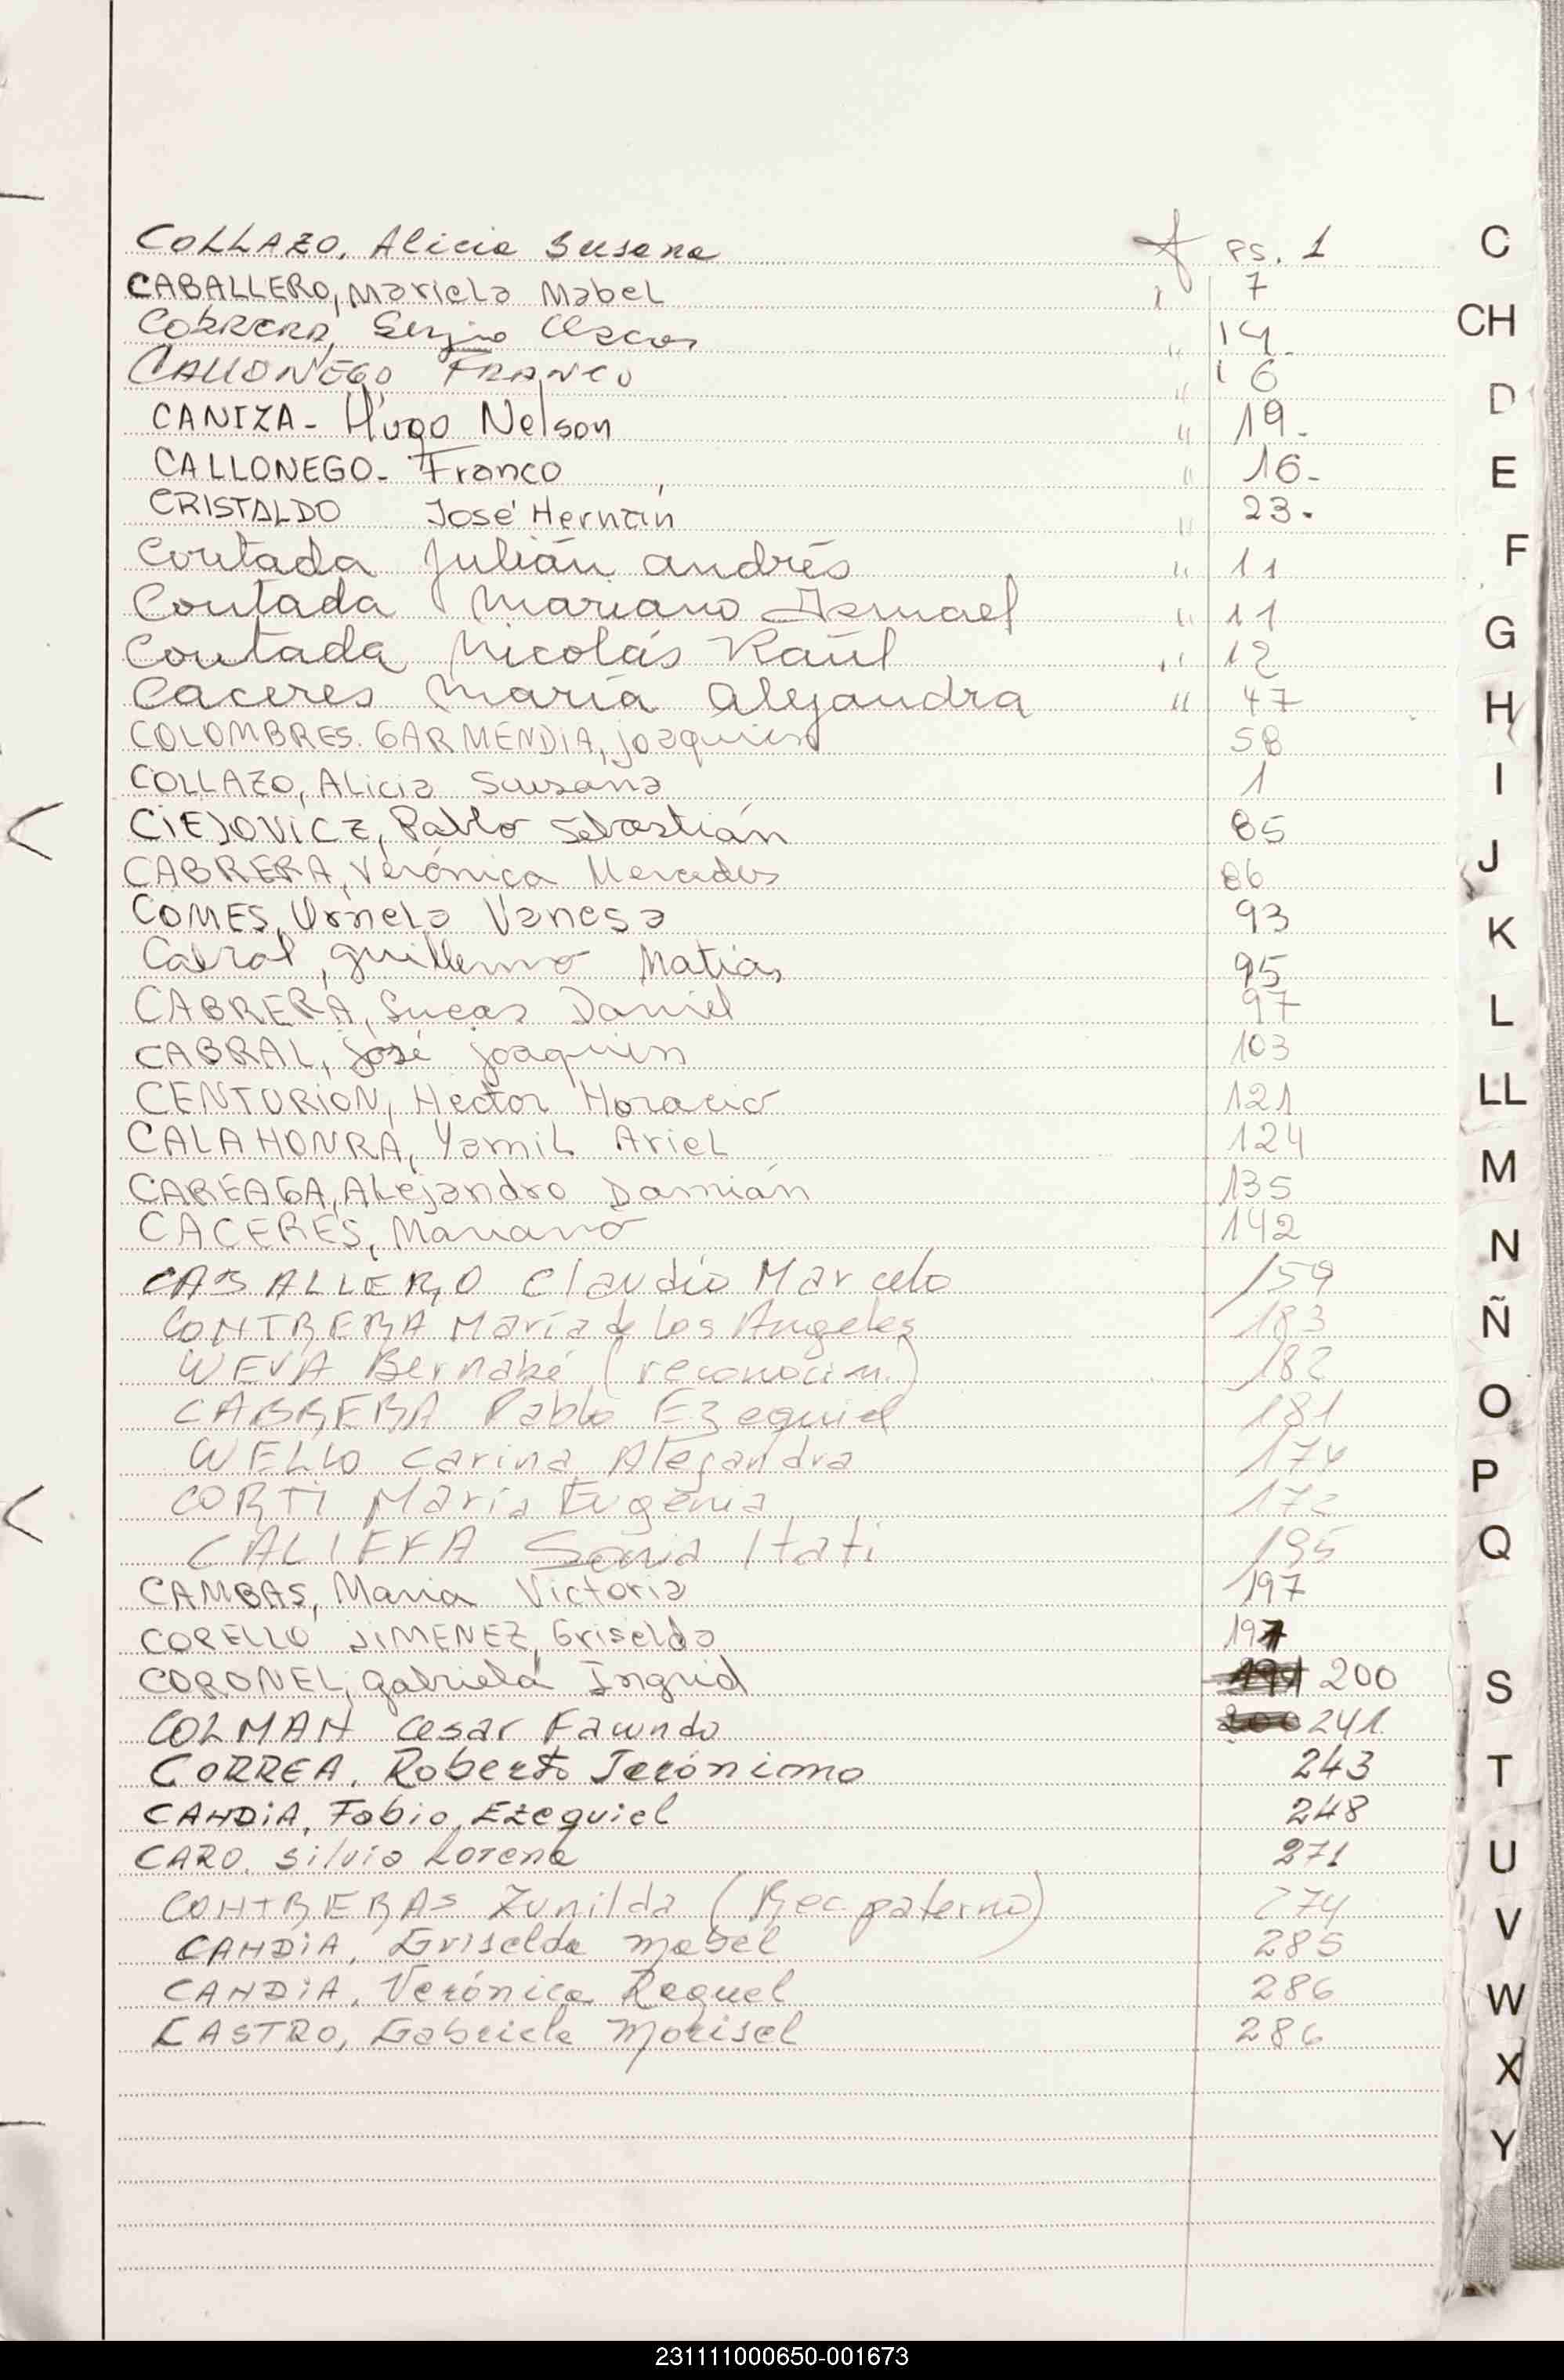 COLLAZO, Alicia Susana pg. 1
CABALLERO, Mariela Mabel " 7
CORRERA, Sergio Oscar " 14.
CALLONEGO FRANCO " 16
CANIZA - Hugo Nelson " 19.
CALLONEGO - Franco " 16 -
CRISTALDO José Hernán " 23.
Coutada Julián Andrés " 11
Coutada Mariano Ismael " 11
Coutada Nicolás Raúl " 12
Caceres María Alejandra " 47
COLOMBRES. GARMENDIA, joaquin 58
COLLAZO, Alicia Susana 1
CIEJOVICZ, Pablo Sebastián 85
CABRERA, Verónica Mercedes 86
COMES, Ornela Vanesa 93
Cabral, Guillermo Matias 95
CABRERA, Lucas Daniel 97
CABRAL, josé joaquin 103
CENTURION, Hector Horacio 121
CALAHONRA, Yamil Ariel 124
CAREAGA, Alejandro Damián 135
CACERES, Mariano 142
CABALLERO Claudio Marcelo 159
CONTRERA María de los Angeles 183
CUEVA Bernabé (reconocim.) 182
CABRERA Pablo Ezequiel 181
CUELLO Carina Alejandra 174
CORTI María Eugenia 172
CALIFFA Sonia Itati 195
CAMBAS, Maria Victoria 197
CORELLO JIMENEZ, Griselda 197
CORONEL, Gabriela Ingrid 200
COLMAN Cesar Facundo 241
CORREA, Roberto Jerónimo 243
CANDIA, Fabio Ezequiel 248
CARO, Silvia Lorena 271
CONTRERAS Zunilda (Rec. paterno) 274
CANDIA, Griselda Mabel 285
CANDIA, Verónica Raquel 286
CASTRO, Gabriela Marisel 286
C
CH
D
E
F
G
H
I
J
K
L
LL
M
N
Ñ
O
P
Q
S
T
U
V
W
X
Y
231111000650-001673